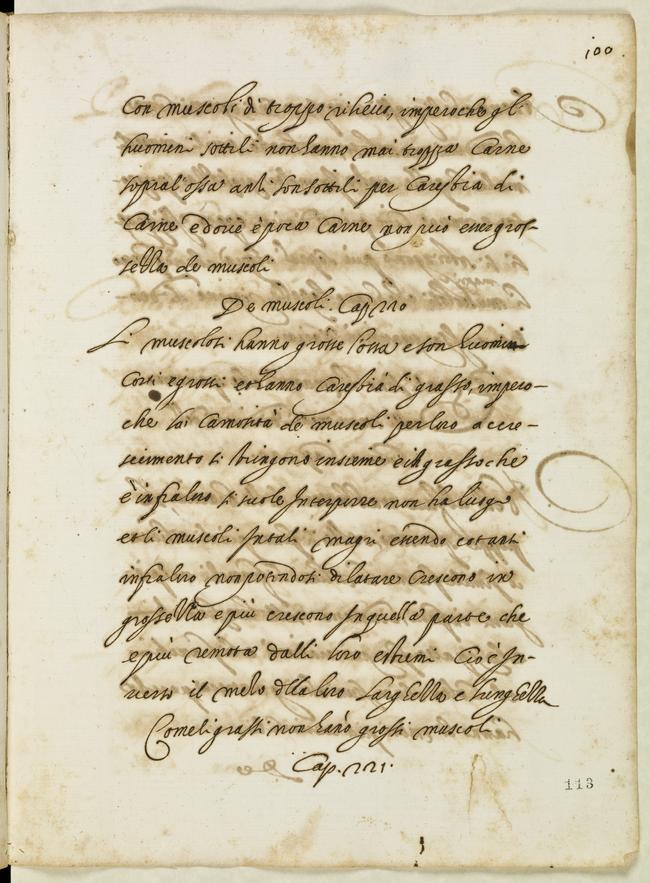 100
Con muscoli di troppo rilievo, imperoche gl'
huomini sottili non hanno mai troppa Carne
sopral'ossa anti son sottili per Carestia di
Carne e doue è poca Carne non può esser gros-
sezza de muscoli
De muscoli. Cap 220
Li muscolosi hanno grosse l'ossa e son huomini
Corti e grossi et hanno Carestia di grasso, impero-
che la Carnosità de muscoli per loro accre-
scimento si stringono insieme e il grasso che
è infraloro si suole Interporre non ha luogo
et li muscoli In tali magri essendo costanti
infraloro non potendosi dilatare Crescono in
grossezza e più crescono In quella parte che
e più remota dalli loro estremi Cioè In-
verso il mezo della loro Larghezza e lunghezza
Come li grassi non hano grossi muscoli
Cap. 221.
113